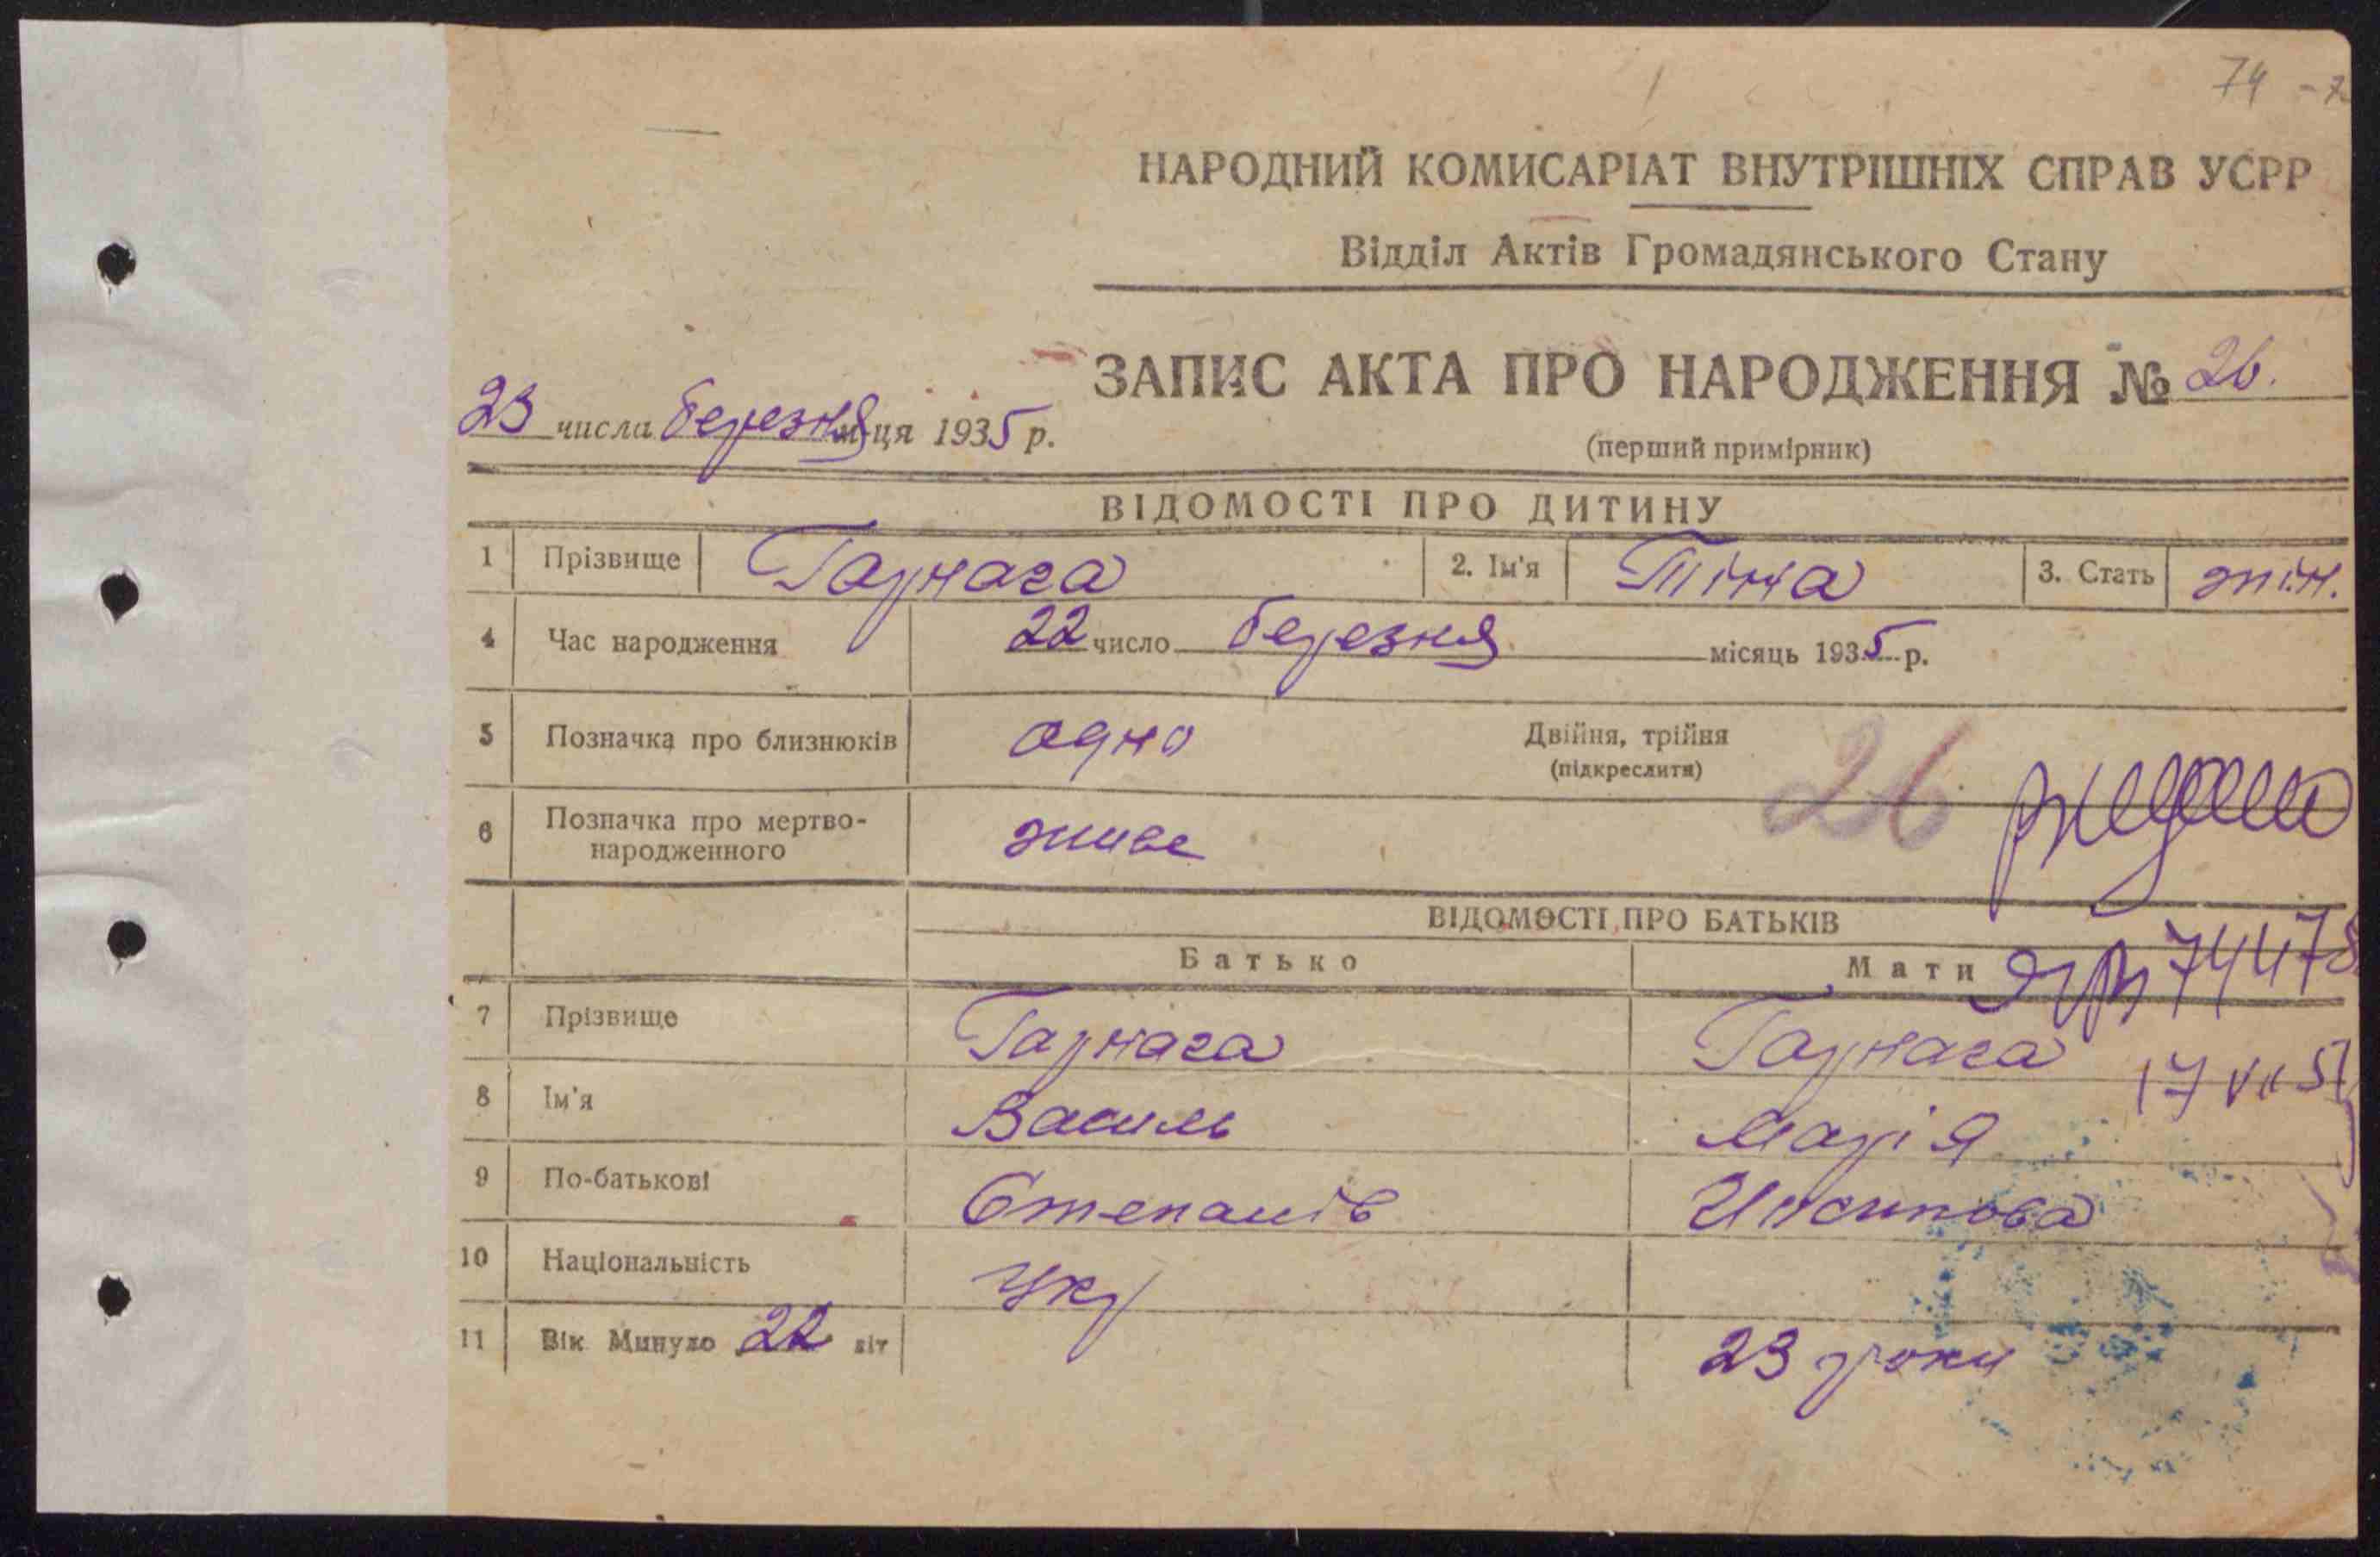 74
НАРОДНИЙ КОМИСАРІАТ ВНУТРІШНІХ СПРАВ УСРР
Відділ Актів Громадянського Стану
ЗАПИС АКТА ПРО НАРОДЖЕННЯ № 26.
23 числа березня м-ця 1935 р.
(перший примірник)
ВІДОМОСТІ ПРО ДИТИНУ
1 Прізвище Гарнага 2. Ім'я Тіна 3. Стать жін.
4 Час народження 22 число березня місяць 1935 р.
5 Позначка про близнюків одно Двійня, трійня
(підкреслити)
26
6 Позначка про мертво-
народженного живе
ВІДОМОСТІ ПРО БАТЬКІВ
Батько Мати
7 Прізвище Гарнага Гарнага
17 VII 51
8 Ім'я Василь Марія
9 По-батькові Степанів
10 Національність Укр
11 Вік Минуло 22 літ 23 роки